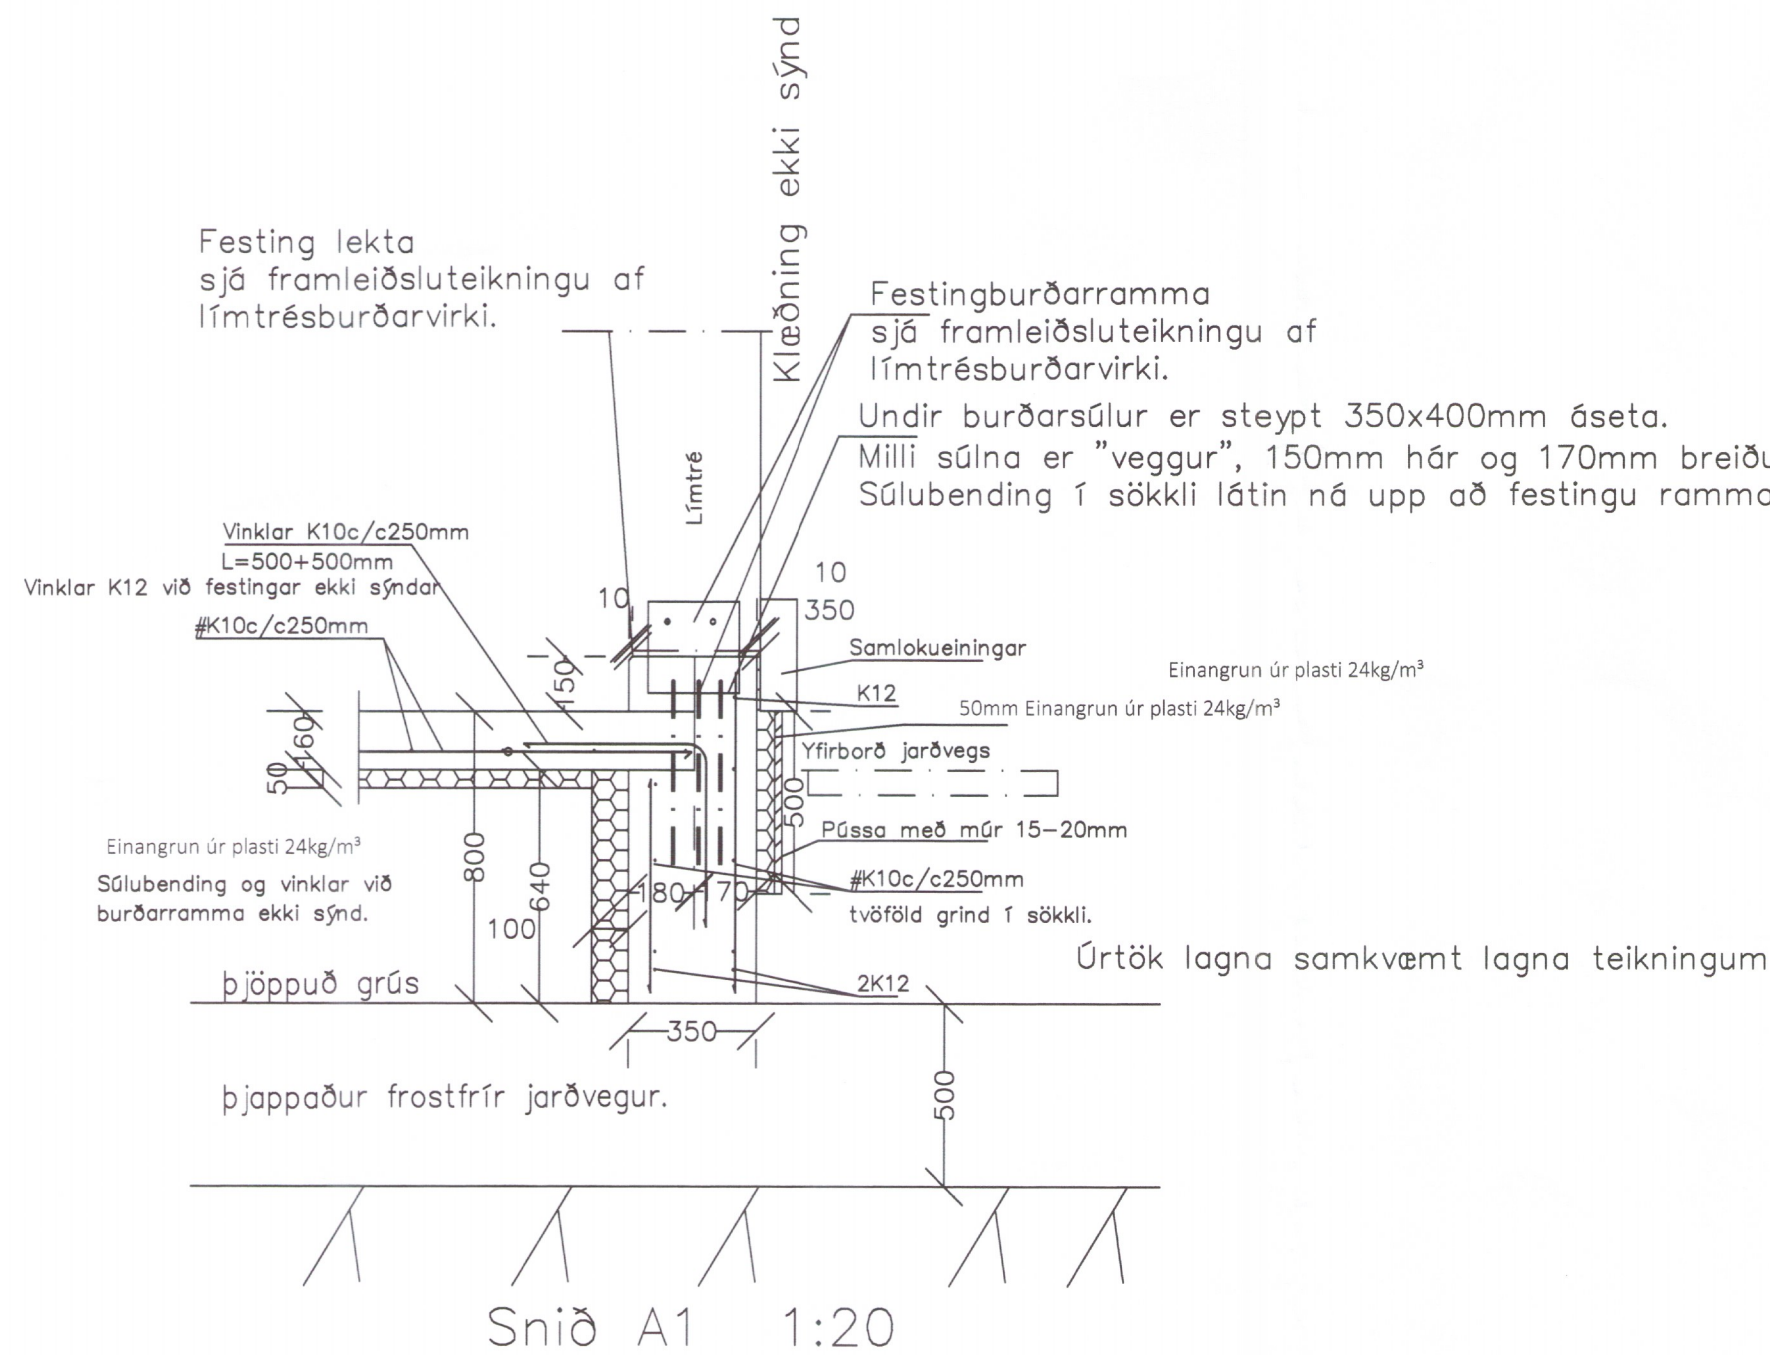 Klæðning ekki sýnd
Festing lekta
sjá framleiðsluteikningu af
límtrésburðarvirki.
Festingburðarramma
sjá framleiðsluteikningu af
límtrésburðarvirki.
Undir burðarsúlur er steypt 350x400mm áseta.
Milli súlna er "veggur", 150mm hár og 170mm breiðu
Súlubending í sökkli látin ná upp að festingu ramma
Límtré
Vinklar K10c/c250mm
L=500+500mm
Vinklar K12 við festingar ekki sýndar
#K10c/c250mm
10
10
350
150
Samlokueiningar
Einangrun úr plasti 24kg/m³
K12
50mm Einangrun úr plasti 24kg/m³
160
50
Yfirborð jarðvegs
500
Pússa með múr 15-20mm
Einangrun úr plasti 24kg/m³
800
640
180
70
#K10c/c250mm
tvöföld grind í sökkli.
Súlubending og vinklar við
burðarramma ekki sýnd.
100
Úrtök lagna samkvæmt lagna teikningum
þjöppuð grús
2K12
350
500
þjappaður frostfrír jarðvegur.
Snið A1 1:20